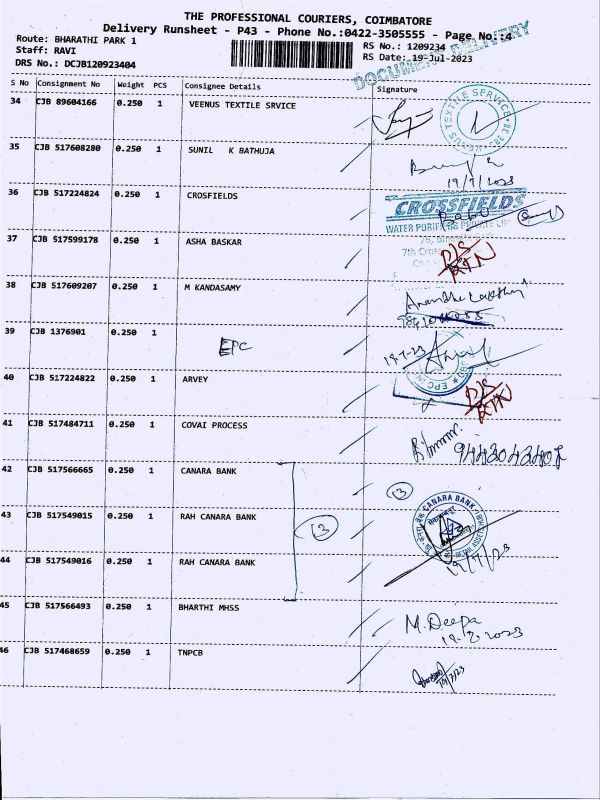 THE PROFESSIONAL COURIERS, COIMBATORE
Delivery Runsheet - P43 - Phone No.:0422-3505555 - Page No.:4
Route: BHARATHI PARK 1 RS No.: 1209234
Staff: RAVI RS Date: 19-Jul-2023
DRS No.: DCJB120923404
DOCUMENT DELIVERY
S No Consignment No Weight PCS Consignee Details Signature
34 CJB 89604166 0.250 1 VEENUS TEXTILE SRVICE
35 CJB 517608280 0.250 1 SUNIL K BATHUJA
19/7/2023
36 CJB 517224824 0.250 1 CROSFIELDS
CROSSFIELDS
WATER PURIFIERS PRIVATE
7th Cross
37 CJB 517599178 0.250 1 ASHA BASKAR
D/S
RTN
38 CJB 517609207 0.250 1 M KANDASAMY
39 CJB 1376901 0.250 1
EPC
19-7-23
40 CJB 517224822 0.250 1 ARVEY
D/S
RTN
41 CJB 517484711 0.250 1 COVAI PROCESS
42 CJB 517566665 0.250 1 CANARA BANK
13
CANARA BANK
43 CJB 517549015 0.250 1 RAH CANARA BANK 13
44 CJB 517549016 0.250 1 RAH CANARA BANK
19/7/23
45 CJB 517566493 0.250 1 BHARTHI MHSS
M. Deepa
19-7-2023
46 CJB 517468659 0.250 1 TNPCB
19/7/23